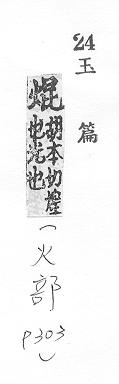 24
玉篇
焜胡本切煌
也光也
(火部
P303)